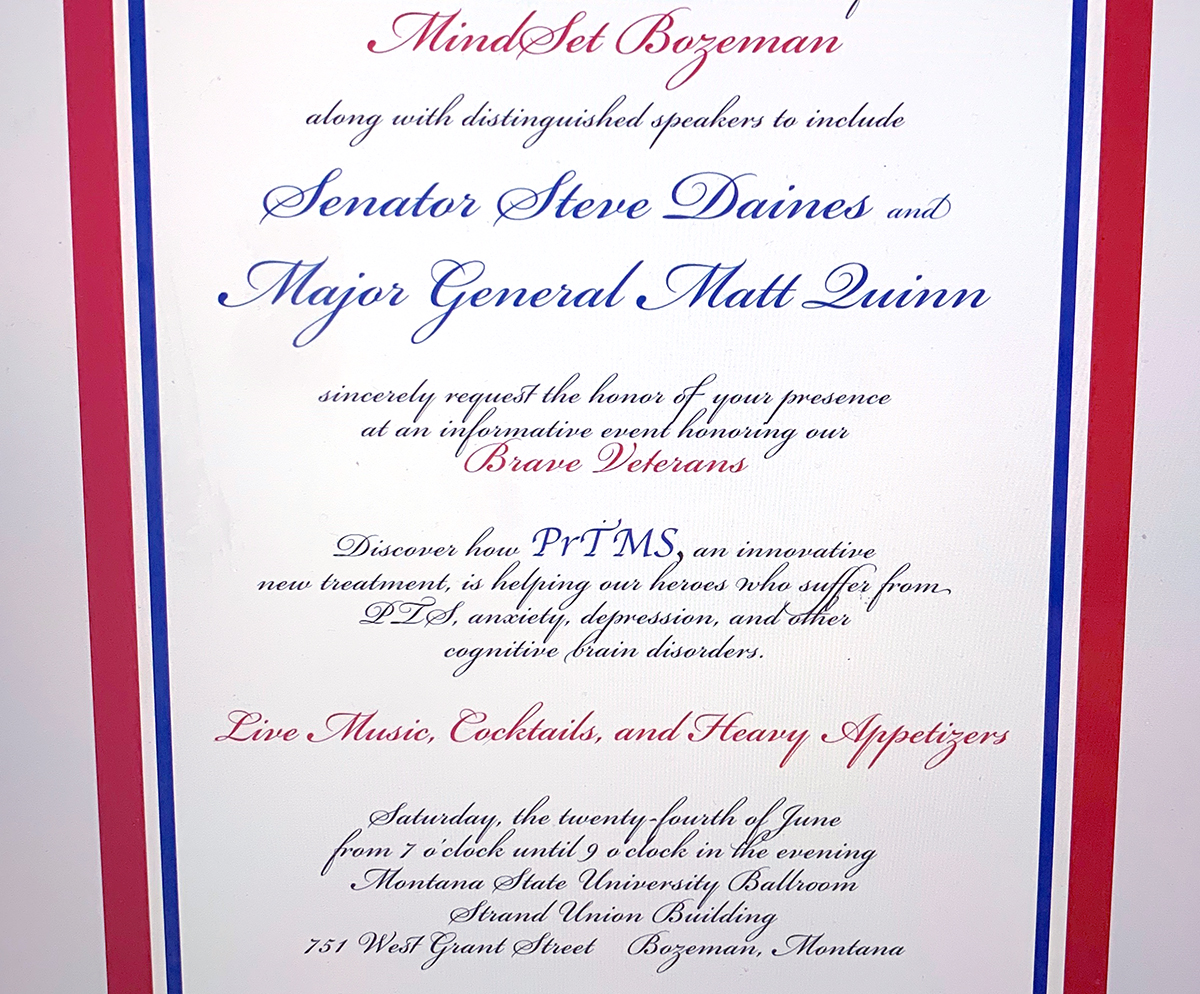 MindSet Bozeman
along with distinguished speakers to include
Senator Steve Daines and
Major General Matt Quinn
sincerely request the honor of your presence
at an informative event honoring our
Brave Veterans
Discover how PrTMS, an innovative
new treatment, is helping our heroes who suffer from
PTS, anxiety, depression, and other
cognitive brain disorders.
Live Music, Cocktails, and Heavy Appetizers
Saturday, the twenty-fourth of June
from 7 o'clock until 9 o'clock in the evening
Montana State University Ballroom
Strand Union Building
751 West Grant Street Bozeman, Montana